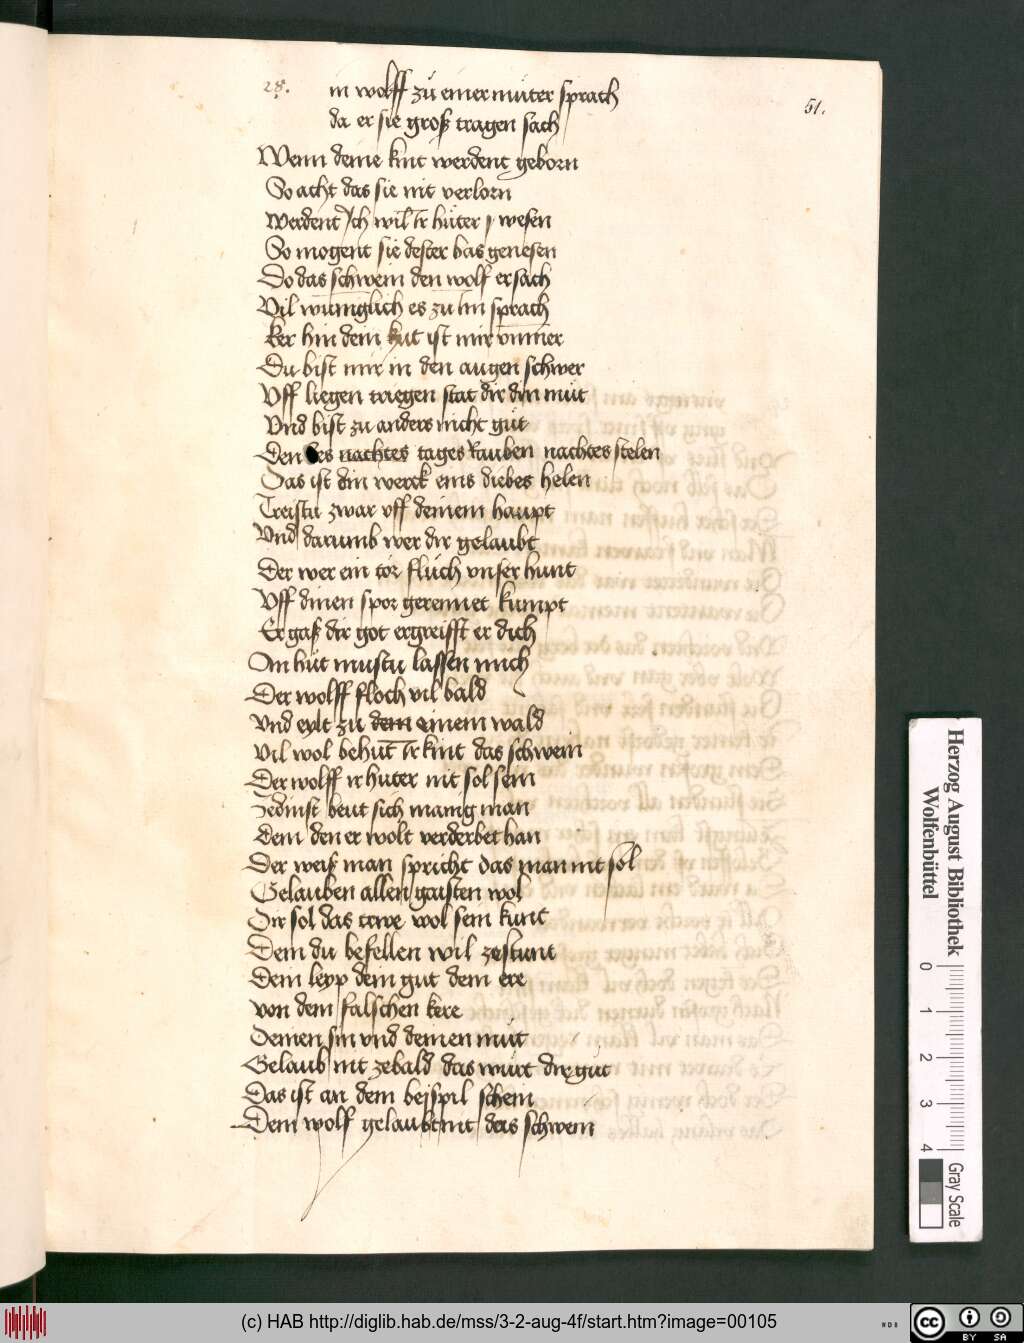 28.
51.
in wolff zu einer muter sprach
da er sie groß tragen sach
Wenn deine kint werdent geborn
So acht das sie nit verlorn
Werdent Ich wil Ir hüter wesen
So mogent sie dester bas genesen
Do das schwein den wolf ersach
Vil es zu Im sprach
ker hin dein hut ist mir
Du bist mir in den augen schwer
Vff liegen triegen stat dir din mut
Vnd bist zu anders nicht gut
Den des nachtes tages Rauben nachtes stelen
Das ist din werck eins diebes helen
Treistu zwar vff deinem haupt
Vnd darumb wer dir gelaubt
Der wer ein tor fluch vnser hunt
Vff dinen spor gerennet kumpt
Er gaß dir got ergreifft er dich
An hut mustu lassen mich
Der wolff floch vil bald
Vnd eylt zu dem einem wald
Vil wol behut Ir kint das schwein
Der wolff ir huter nit sol sein
Sedinst beut sich manig man
Dem den er wolt verderbet han
Der weiß man spricht das man nit sol
Gelauben allen gaisten wol
Dir sol das trwe wol sein kunt
Dem du befellen wil zestunt
Dein leyp dein gut dein ere
von dem falschen kere
Deinen sin vnd deinen mut
Gelaub nit zebald das würt dir gut
Das ist an dem beispil schein
Dem wolf gelaubt nit das schwein
Herzog August Bibliothek
Wolfenbüttel
0 1 2 3 4
Gray Scale
(c) HAB http://diglib.hab.de/mss/3-2-aug-4f/start.htm?image=00105
WDB
cc BY SA